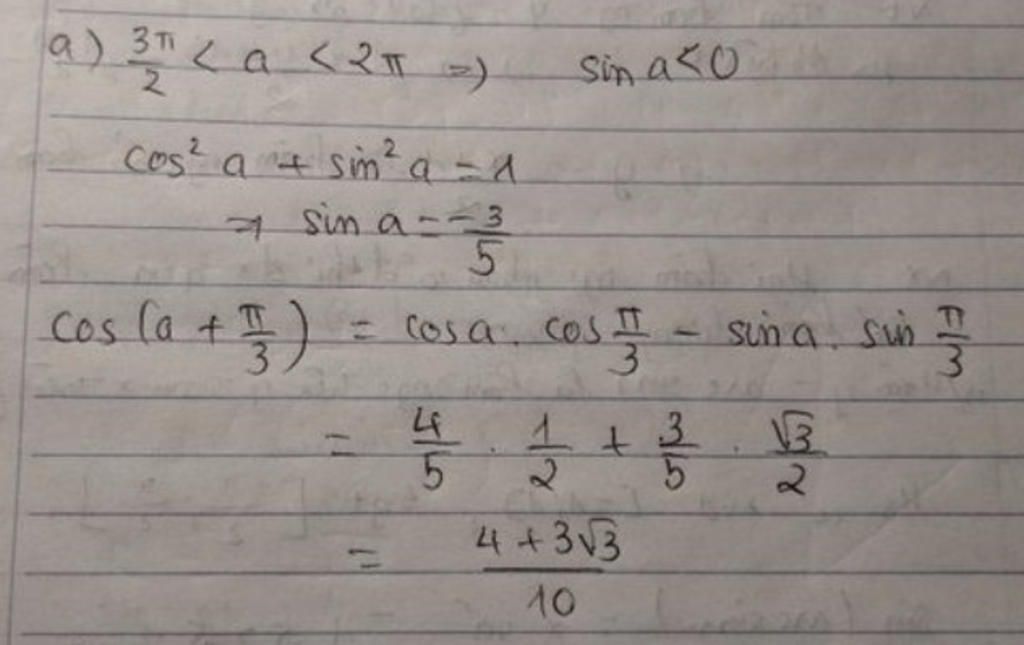 a) 3π/2 < a < 2π => sin a < 0
cos² a + sin² a = 1
=> sin a = -3/5
cos(a + π/3) = cos a . cos π/3 - sin a . sin π/3
= 4/5 . 1/2 + 3/5 . √3/2
= (4 + 3√3)/10